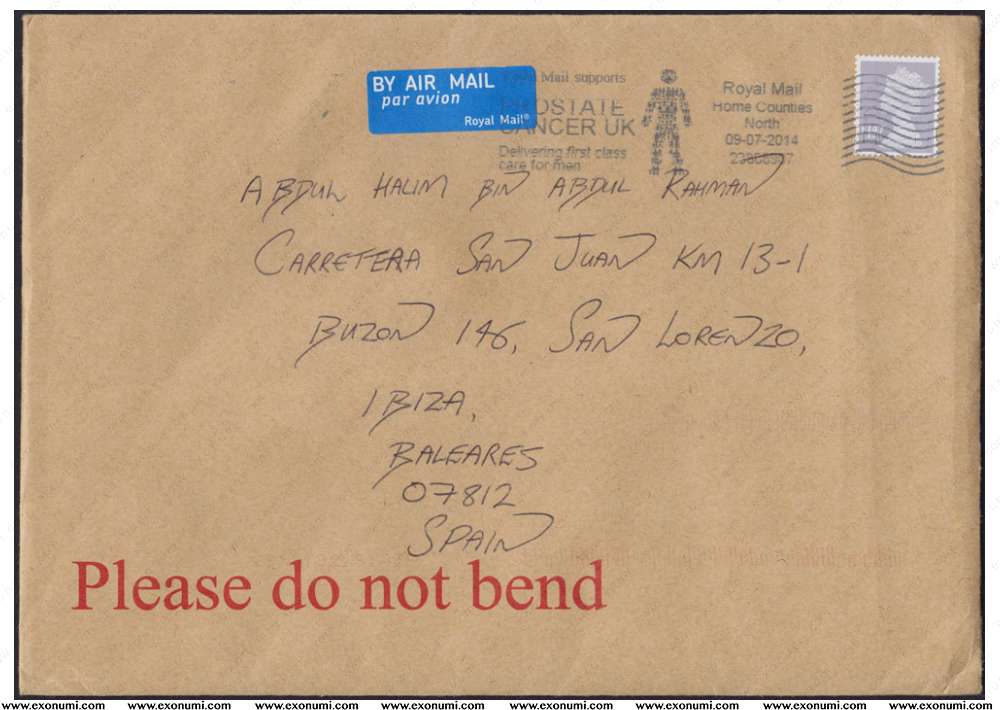 BY AIR MAIL
par avion
Royal Mail®
Mail supports
PROSTATE
CANCER UK
Delivering first class
care for men
Royal Mail
Home Counties
North
09-07-2014
ABDUL HALIM BIN ABDUL RAHMAN
CARRETERA SAN JUAN KM 13-1
BUZON 146, SAN LORENZO,
IBIZA,
BALEARES
07812
SPAIN
Please do not bend
www.exonumi.com www.exonumi.com www.exonumi.com www.exonumi.com www.exonumi.com www.exonumi.com www.exonumi.com www.exonumi.com